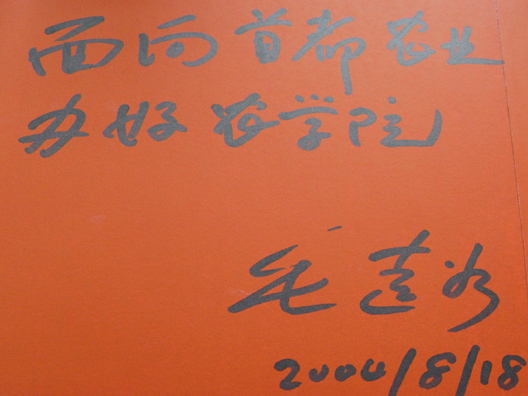 面向首都农业
办好农学院
毛达如
2004/8/18